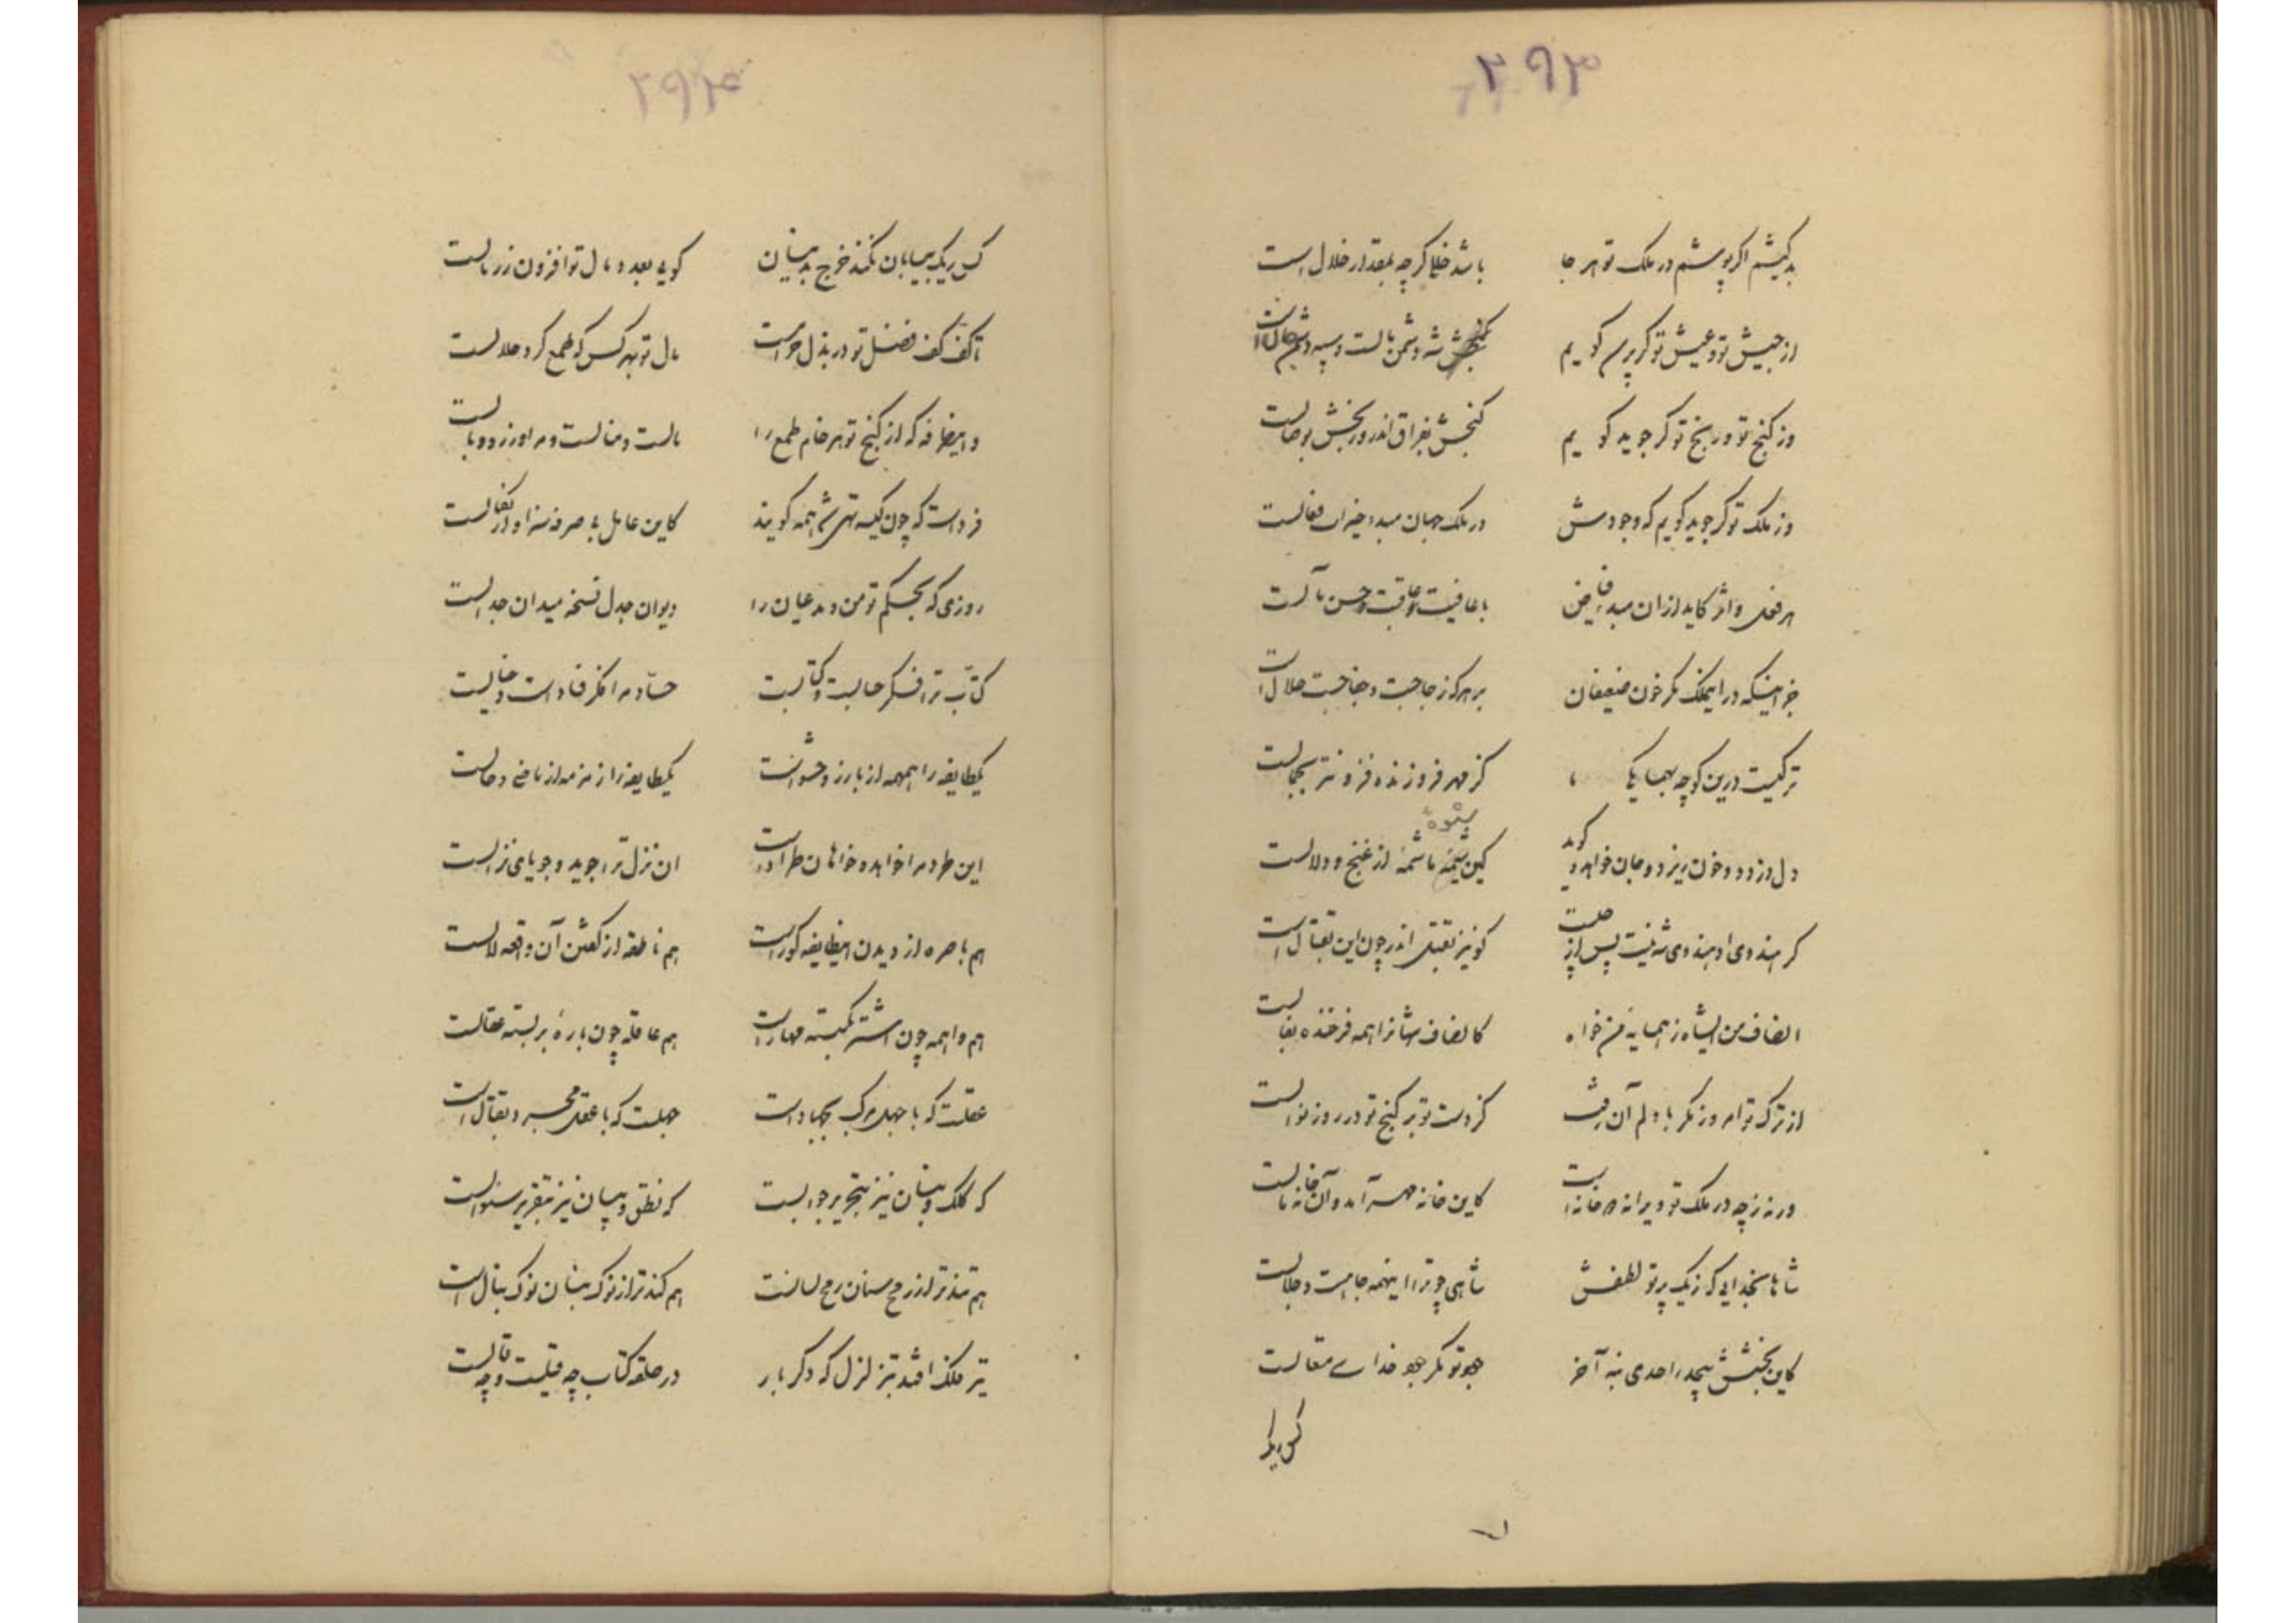 ۲۹۳
بد کیشم اگر پوشم در ملک تو هر جا باشد خللی گرچه بمقدار خلال است
از جیش تو و عیش تو گر پرسم گویم شه دشمن مالست و سپه دشمن حال است
وز گنج تو و رنج تو گر جوید گویم گنجش بفراق اندر و رنجش بوصالست
وز ملک تو گر جوید گویم که وجودش در ملک جهان مبدء خیرات فعالست
هر فعل و اثر کاید ازان مبدء فیاض با عافیت و عاقبت و حسن مآلست
جز اینکه در این ملک مگر خون ضعیفان بر هر که ز جا جست و جفا جست حلال است
ترکیست درین کوچه بهمسایگی ما کز مهر فروزنده فزونتر بجمالست
دل دزدد و خون ریزد و جان خواهد و گوید کین شیمه ما شمه از غنج و دلالست
شیوه
گر هندوی او هندوی شه نیست پس از چیست کو نیز بقتل اندر چون این بقتال است
انصاف من ای شاه ز همسایه من خواه کانصاف شهانرا همه فرخنده بفالست
از ترک تو امروز نگر با دلم آن رفت کز دست تو بر گنج تو در روز نوالست
ورنه ز چه در ملک تو ویرانه دو خانه است کاین خانه مهر آمد و آن خانه مالست
شاها بخدایی که ز یک پرتو لطفش شاهی چو ترا اینهمه جاهست و جلالست
کاین بخشش بیحد را حدی بنه آخر جود تو مگر جود خدای متعالست
کس ریگ
۲۹۴
کس ریگ بیابان نکند خرج بدینسان گویی بعدد مال تو افزون ز رمالست
تا کف کف فضل تو در بذل جوادست مال تو بهر کس که طمع کرد حلالست
و ایطرفه که از گنج تو هر خام طمع را مالست و منالست و مرا وزر و وبالست
فرداست که چون کیسه تهی شد همه گویند کاین عامل بی صرفه سزاوار نکالست
روزی که بحکم تو من و مدعیان را دیوان جدل نسخه میدان جدالست
کتاب ترا فکر حسابست و کتابست حساد مرا فکر فسادست و خیالست
یکطایفه را همهمه از بارز و حشوست یکطایفه را زمزمه از ماضی و حالست
این طرد مرا خواهد و خواهان طراد است آن نزل ترا جوید و جویای نزالست
هم باصره از دیدن این طایفه کوراست هم ناطقه از گفتن آن واقعه لالست
هم واهمه چون اشتر بگسسته مهاراست هم عاقله چون باره بربسته عقالست
عقلست که با جهل مرکب بجهاد است جهلست که با عقل مجرد بقتال است
که کلک و بنان نیز بتحریر جوابست که نطق و بیان نیز بتقریر سئوالست
هم تندتر از رمح سنان رمح لسانست هم کندتر از نوک بنان نوک نبال است
تیر فلک افتد بتزلزل که دگر بار در حلقه کتاب چه قیلست و چه قالست